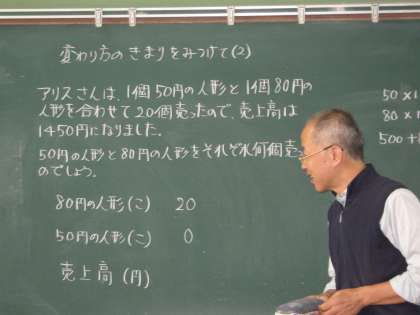 変わり方のきまりをみつけて(2)
アリスさんは、1個50円の人形と1個80円の
人形を合わせて20個売ったので、売上高は
1450円になりました。
50円の人形と80円の人形をそれぞれ何個売っ
たのでしょう。
80円の人形(こ) 20
50円の人形(こ) 0
売上高(円)
50×1
80×1
500+